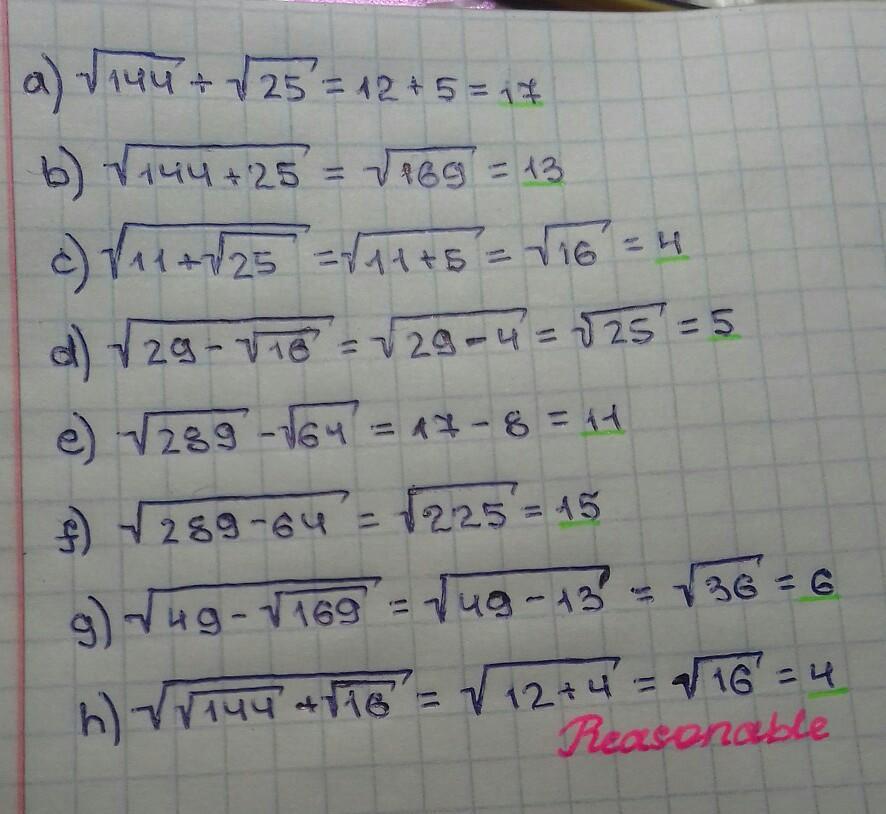 a) √144 + √25 = 12 + 5 = 17
b) √(144 + 25) = √169 = 13
c) √(11 + √25) = √(11 + 5) = √16 = 4
d) √(29 - √16) = √(29 - 4) = √25 = 5
e) √289 - √64 = 17 - 8 = 11
f) √(289 - 64) = √225 = 15
g) √(49 - √169) = √(49 - 13) = √36 = 6
h) √(√144 + √16) = √(12 + 4) = √16 = 4
Reasonable